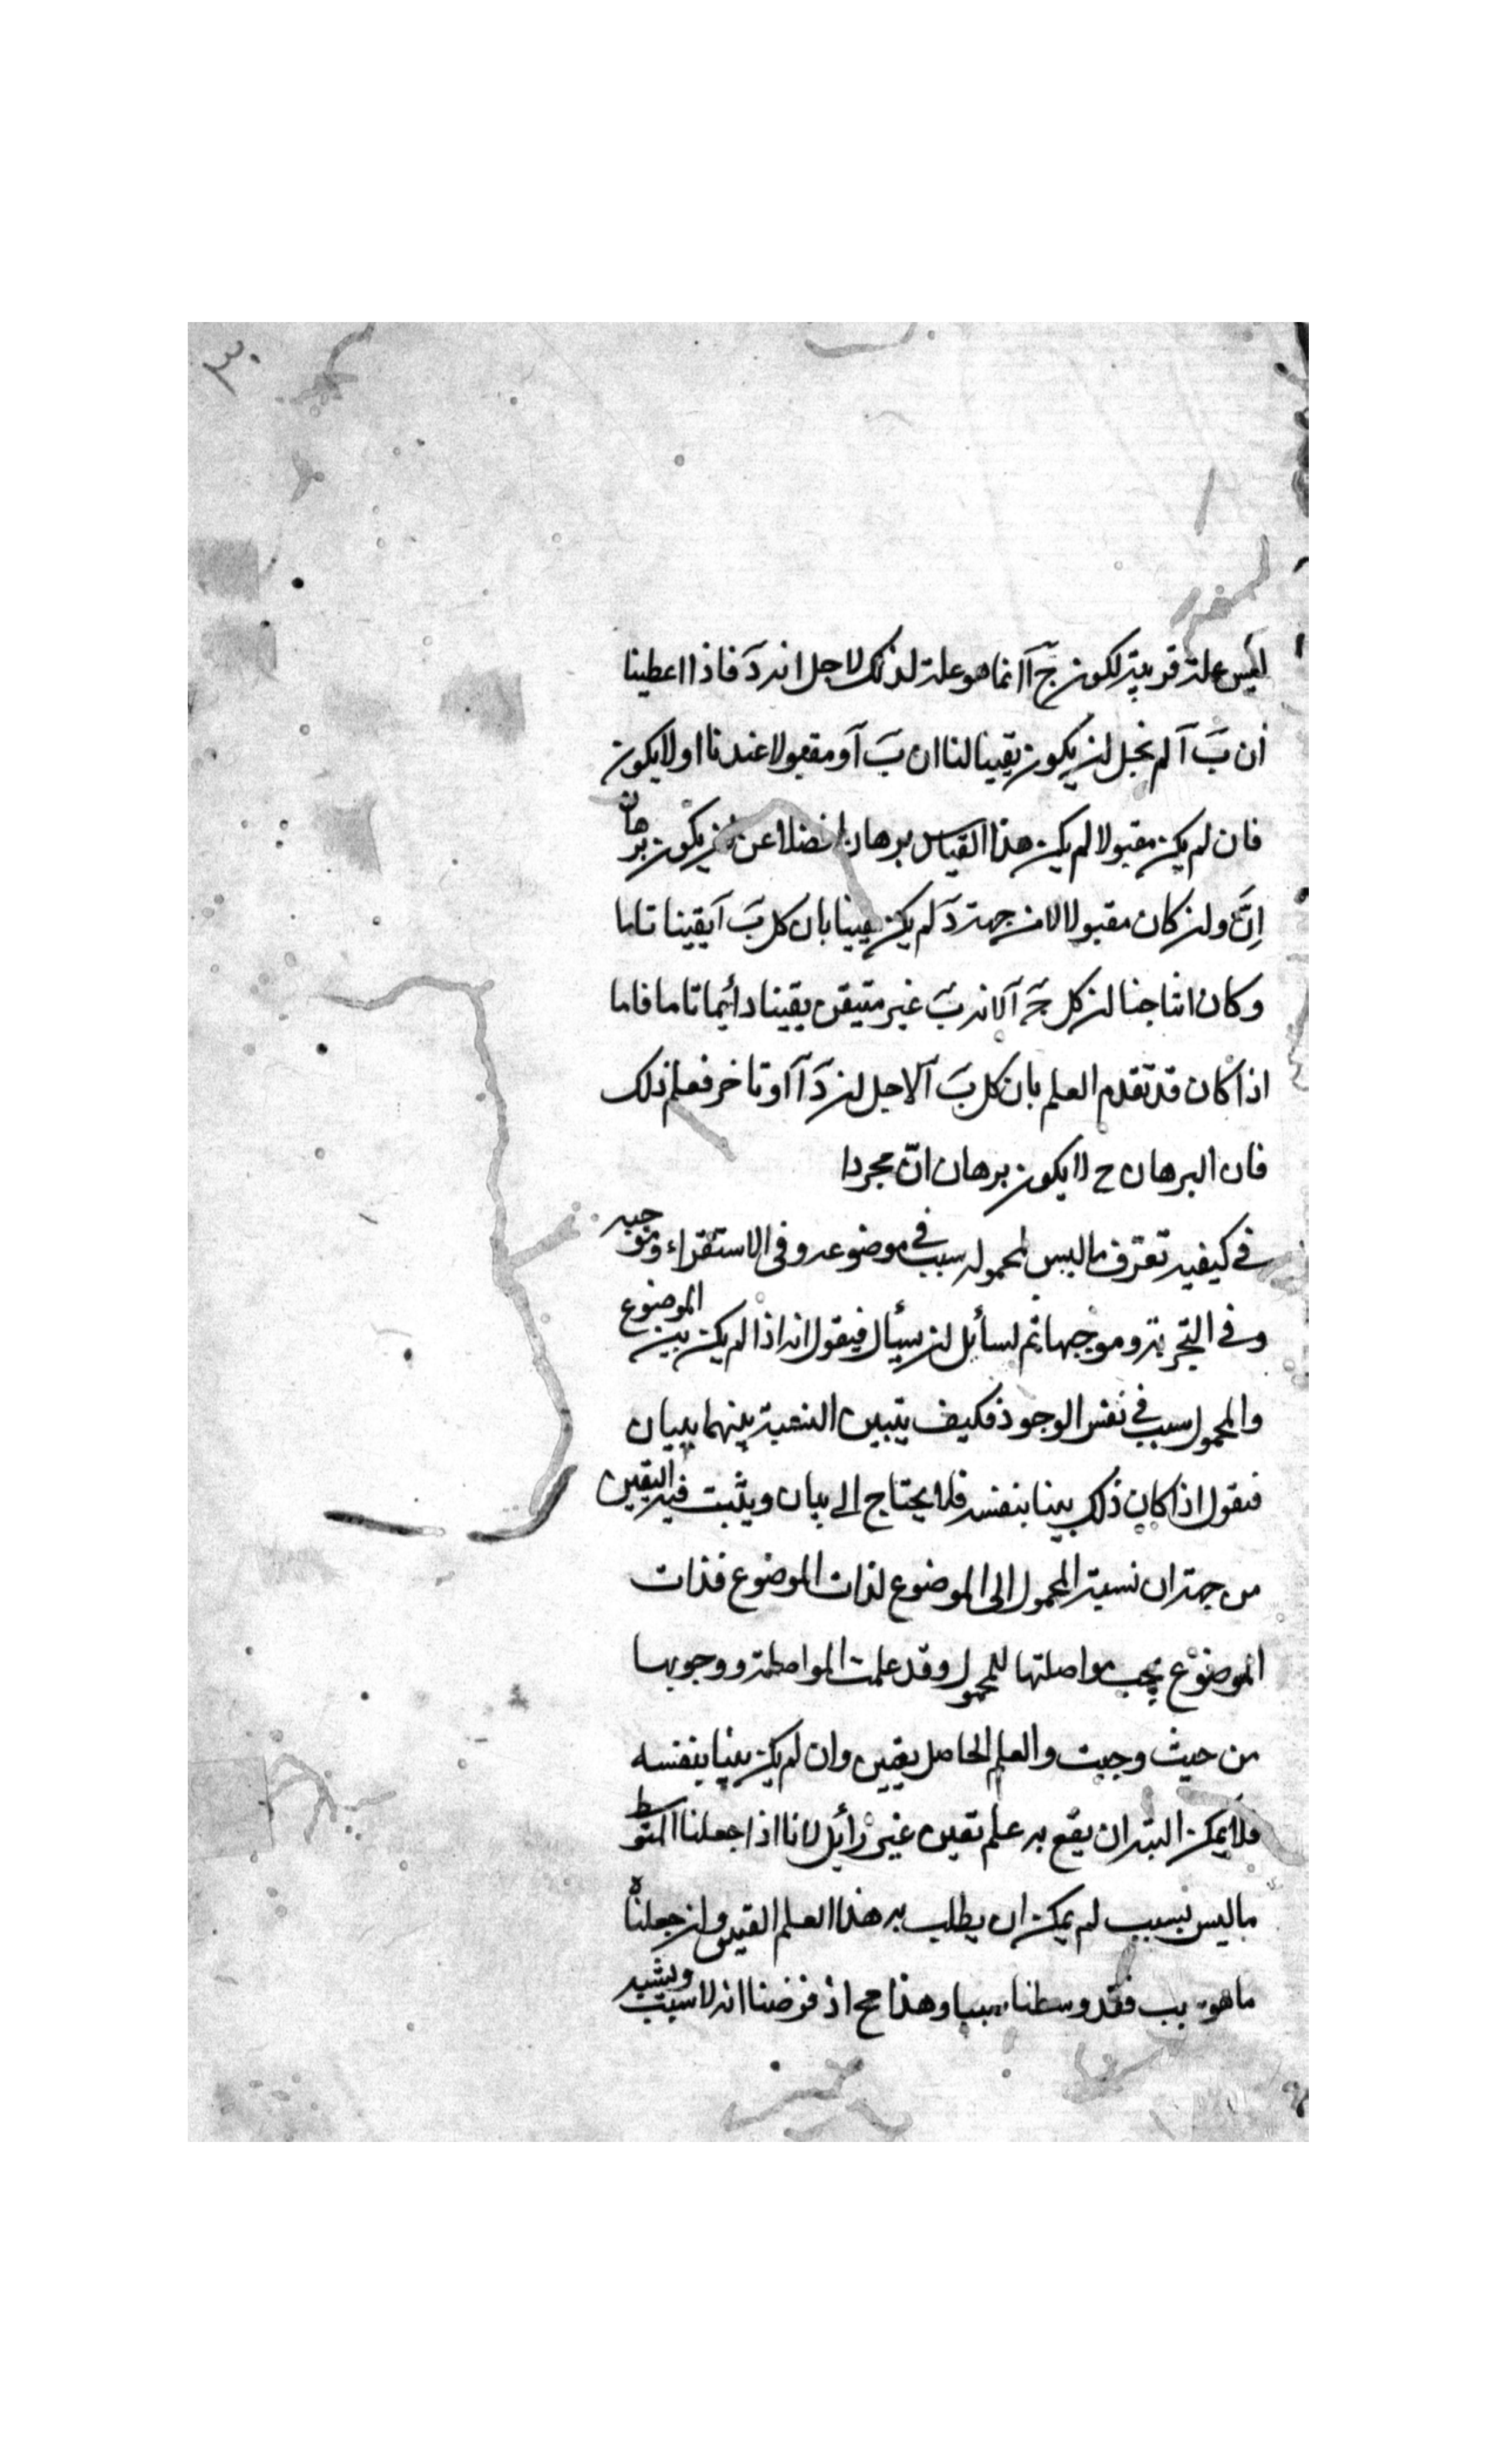 ٣٠
ليس علة قريبة لكون جٓ آ انما هو علة لذلك لاجل انه دٓ فاذا اعطينا
ان بٓ آ لم نخل لن يكون يقينا لنا ان بٓ آ ومقبولا عندنا او لا يكون
فان لم يكن مقبولا لم يكن هذا القياس برهانا فضلا عن لن يكون برهان
اِنَّ ولن كان مقبولا لا من جهة دٓ لم يكن يقينا بان كل بٓ آ يقينا تاما
وكان انتاجنا لن كل جٓ آ لانه بٓ غير متيقن يقينا دائما تاما فاما
اذا كان قد تقدم العلم بان كل بٓ آ لاجل لن دٓ آ او تاخر فعلم ذلك
فان البرهان ح لا يكون برهان انّ مجردا
في كيفيه تعرّف ما ليس لمحموله سبب في موضوعه وفى الاستقراء وموجبه
وفي التجربة وموجبها ثم لسائل لن يسئال فيقول انه اذا لم يكن بين الموضوع
والمحمول سبب في نفس الوجود فكيف يتبين النسبة بينهما ببيان
فنقول اذا كان ذلك بينا بنفسه فلا يحتاج الى بيان ويثبت فيه اليقين
من جهة ان نسبة المحمول الى الموضوع لذات الموضوع فذات
الموضوع يجب مواصلتها للمحمول وقد علمت المواصلة ووجوبها
من حيث وجبت والعلم الحاصل يقين وان لم يكن بينا بنفسه
فلا يمكن البته ان يقع به علم يقين غير زائل لانا اذا جعلنا المتوسط
ما ليس بسبب لم يمكن ان يطلب به هذا العلم اليقين ولن جعلناه
ما هو سبب فقد وسطنا سببا وهذا مح اذ فرضنا انه لا سبب ويشبه